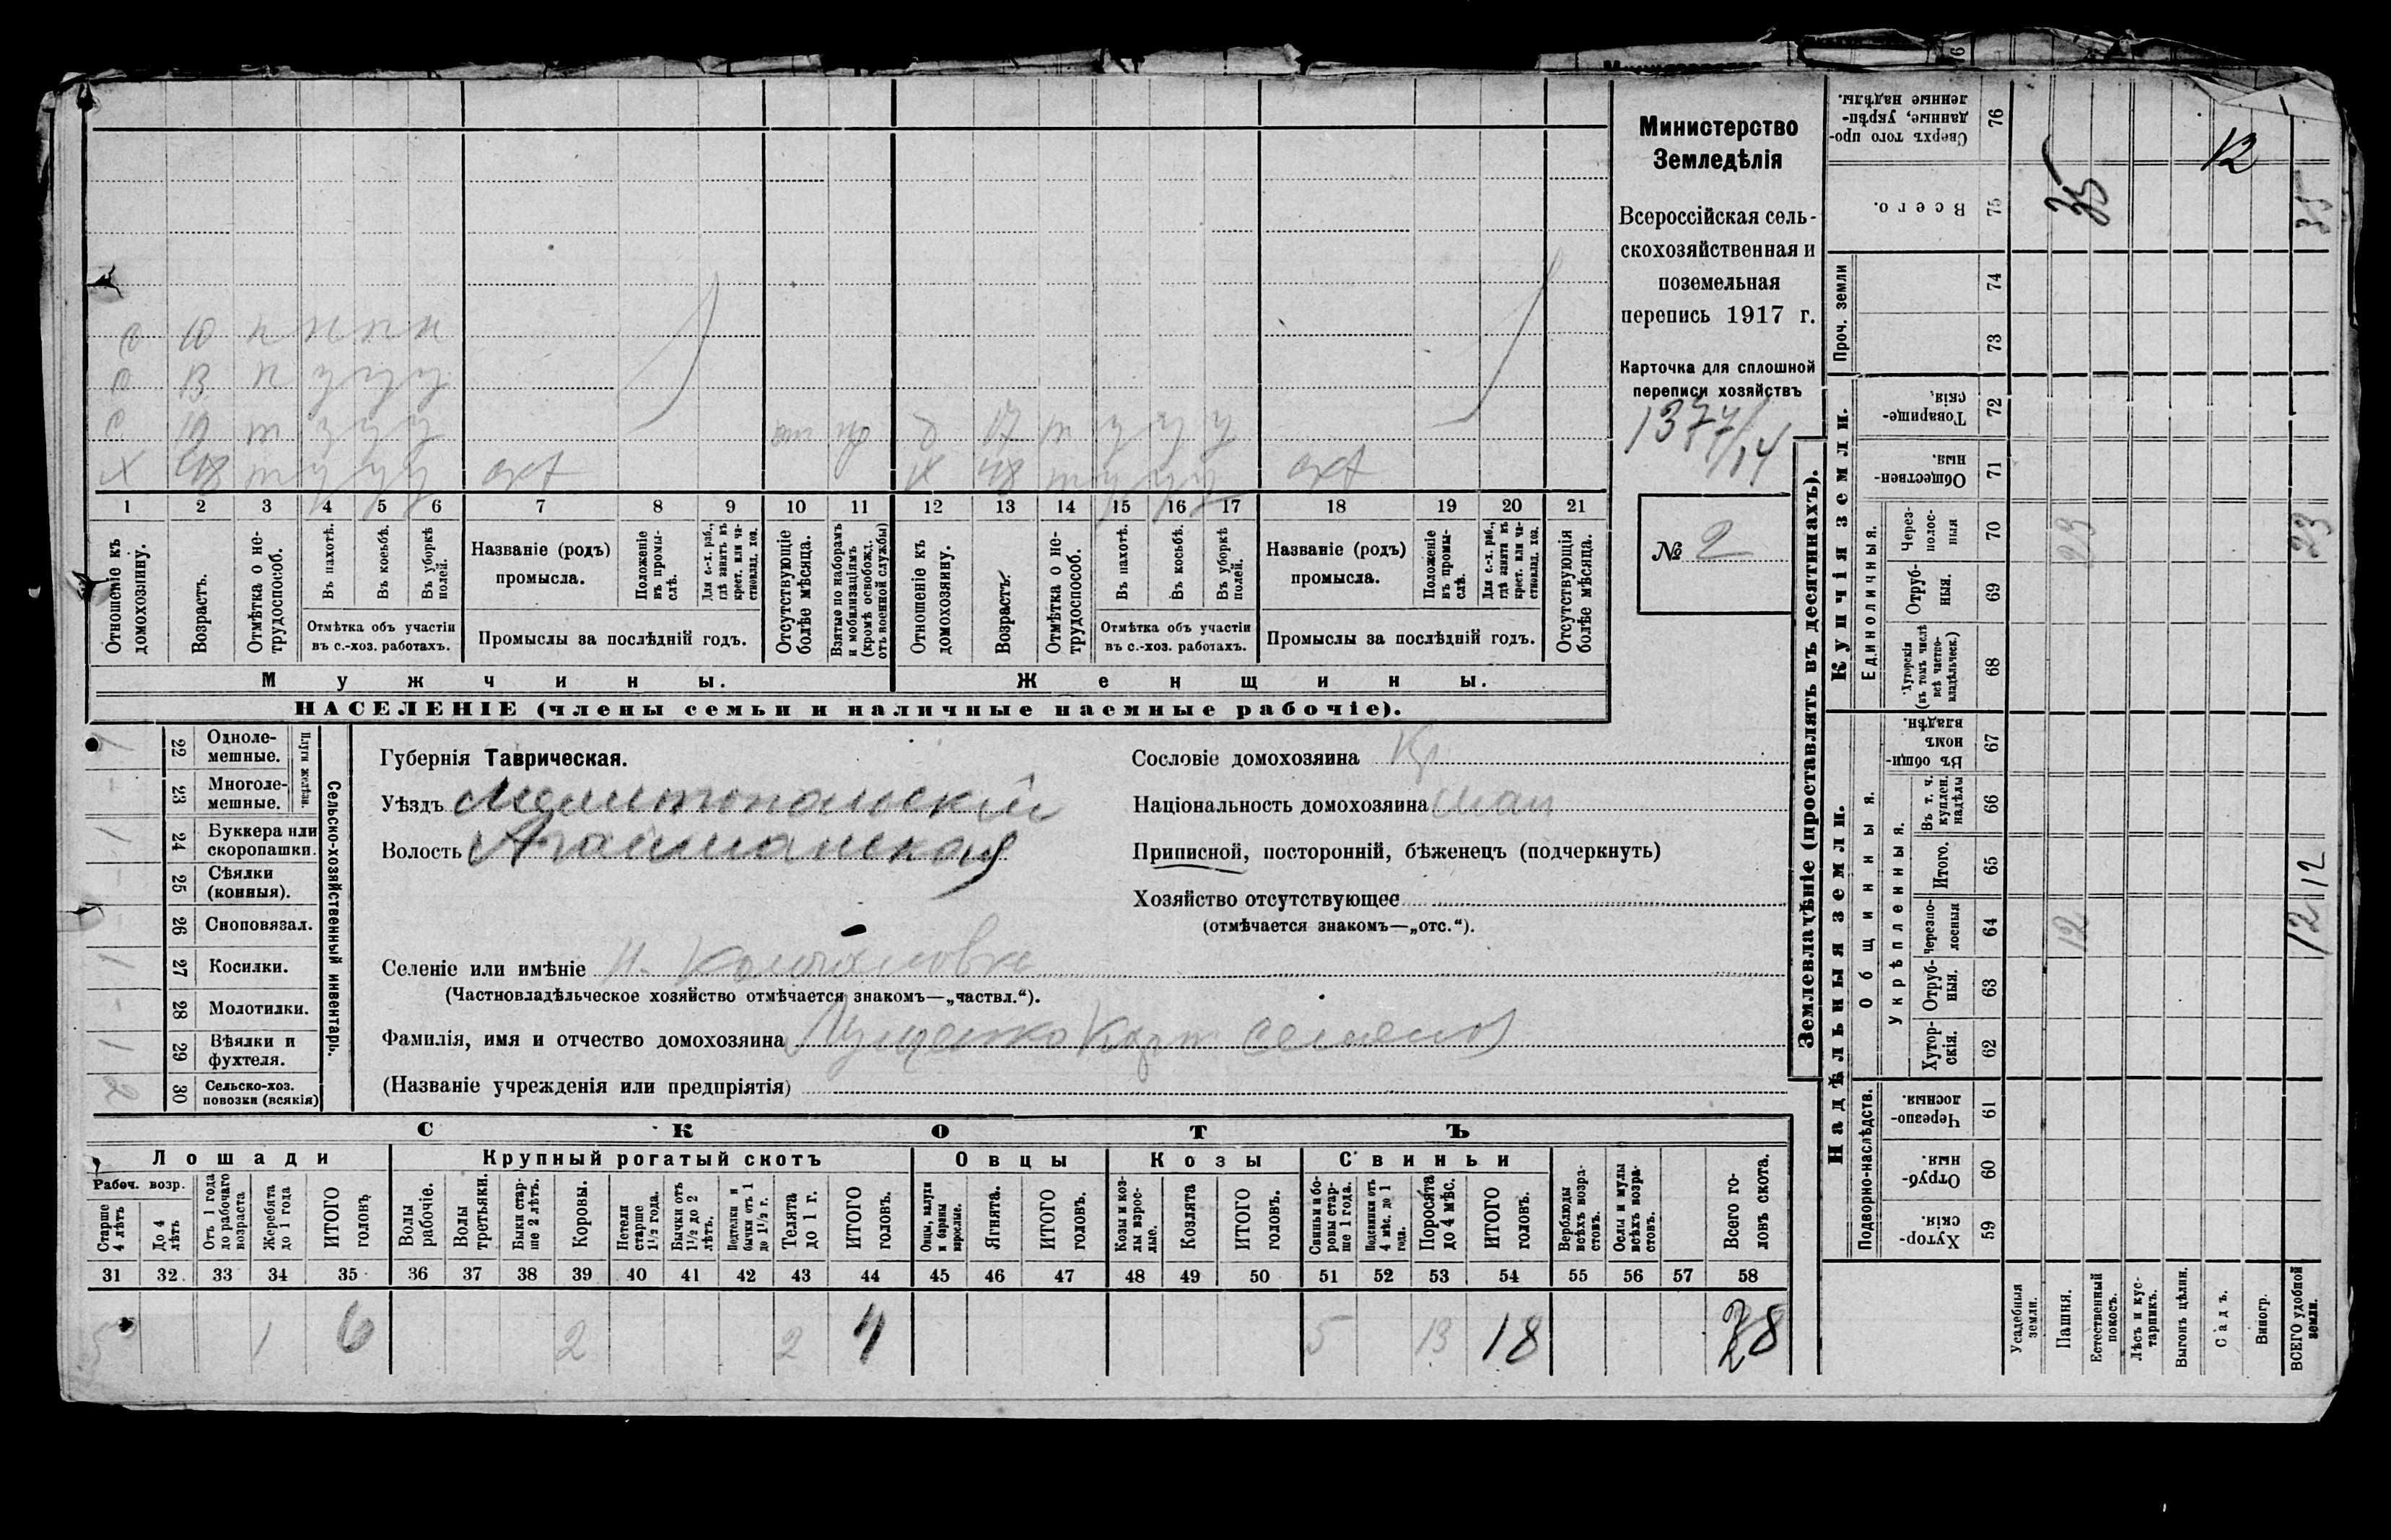 Министерство
Земледѣлія
Всероссійская сель-
скохозяйственная и
поземельная
перепись 1917 г.
Карточка для сплошной
переписи хозяйствъ
1377/14
№ 2
с 10 н н н н
с 13 п у у у
с 19 т у у у от пр д 17 т у у у
х 48 т у у у х 48 т у у у
1 2 3 4 5 6 7 8 9 10 11 12 13 14 15 16 17 18 19 20 21
Отношеніе къ домохозяину.
Возрастъ.
Отмѣтка о не-трудоспособ.
Въ пахотѣ.
Въ косьбѣ.
Въ уборкѣ полей.
Отмѣтка объ участіи
въ с.-хоз. работахъ.
Названіе (родъ)
промысла.
Положеніе въ промы-слѣ.
Для с.-х. раб., гдѣ занятъ въ крест. или ча-стновлад. хоз.
Промыслы за послѣдній годъ.
Отсутствующіе болѣе мѣсяца.
Взятые по наборамъ и мобилизаціямъ (кромѣ освобожд. отъ военной службы)
Отношеніе къ домохозяину.
Возрастъ.
Отмѣтка о не-трудоспособ.
Въ пахотѣ.
Въ косьбѣ.
Въ уборкѣ полей.
Отмѣтка объ участіи
въ с.-хоз. работахъ.
Названіе (родъ)
промысла.
Положеніе въ промы-слѣ.
Для с.-х. раб., гдѣ занята въ крест. или ча-стновлад. хоз.
Промыслы за послѣдній годъ.
Отсутствующія болѣе мѣсяца.
Мужчины. Женщины.
НАСЕЛЕНІЕ (члены семьи и наличные наемные рабочіе).
22 Одноле-мешные.
23 Многоле-мешные.
Плуги желѣзн.
24 Буккера или скоропашки. 1
25 Сѣялки (конныя).
26 Сноповязал.
27 Косилки. 1
28 Молотилки.
29 Вѣялки и фухтеля. 1
30 Сельско-хоз. повозки (всякія) 2
Сельско-хозяйственный инвентарь.
Губернія Таврическая.
Уѣздъ Мелитопольскій
Волость Агайманская
Сословіе домохозяина Кр
Національность домохозяина мал
Приписной, посторонній, бѣженецъ (подчеркнуть)
Хозяйство отсутствующее
(отмѣчается знакомъ—„отс.“).
Селеніе или имѣніе Н.
(Частновладѣльческое хозяйство отмѣчается знакомъ—„частвл.“).
Фамилія, имя и отчество домохозяина Луценко Карп Семенов
(Названіе учрежденія или предпріятія)
СКОТЪ
Лошади Крупный рогатый скотъ Овцы Козы Свиньи
Рабоч. возр.
Старше 4 лѣтъ
До 4 лѣтъ
Отъ 1 года до рабочаго возраста
Жеребята до 1 года
ИТОГО головъ
Волы рабочіе.
Волы третьяки.
Быки стар-ше 2 лѣтъ.
Коровы.
Нетели старше 1½ года.
Бычки отъ 1½ до 2 лѣтъ.
Подтелки и бычки отъ 1 до 1½ г.
Телята до 1 г.
ИТОГО головъ.
Овцы, валухи и бараны взрослые.
Ягнята.
ИТОГО головъ.
Козы и коз-лы взрос-лые.
Козлята
ИТОГО головъ.
Свиньи и бо-ровы стар-ше 1 года.
Подсвинки отъ 4 мѣс. до 1 года.
Поросята до 4 мѣс.
ИТОГО головъ.
Верблюды всѣхъ возра-стовъ.
Ослы и мулы всѣхъ возра-стовъ.
Всего го-ловъ скота.
31 32 33 34 35 36 37 38 39 40 41 42 43 44 45 46 47 48 49 50 51 52 53 54 55 56 57 58
5 1 6 2 2 4 5 13 18 28
Землевладѣніе (проставлять въ десятинахъ).
Надѣльныя земли. Купчія земли. Проч. земли
Подворно-наслѣдств. Общинныя. Укрѣпленныя. Единоличныя.
Хутор-скія. 59
Отруб-ныя. 60
Черезпо-лосныя. 61
Хутор-скія. 62
Отруб-ныя. 63
Черезпо-лосныя 64
Итого. 65
Въ т. ч. куплен. надѣлы 66
Въ общин-номъ владѣн. 67
Хуторскія (въ томъ числѣ всѣ частно-владѣльческ.) 68
Отруб-ныя. 69
Через-полос-ныя 70
Обществен-ныя. 71
Товарище-скія. 72
73
74
Всего. 75
Сверхъ того про-данные, укрѣп-ленные надѣлы. 76
Усадебныя земли.
Пашня. 12 23 35
Естественный покосъ.
Лѣсъ и кус-тарникъ.
Выгонъ цѣлин.
Садъ. 12
Виногр.
ВСЕГО удобной земли. 12 12 23 35